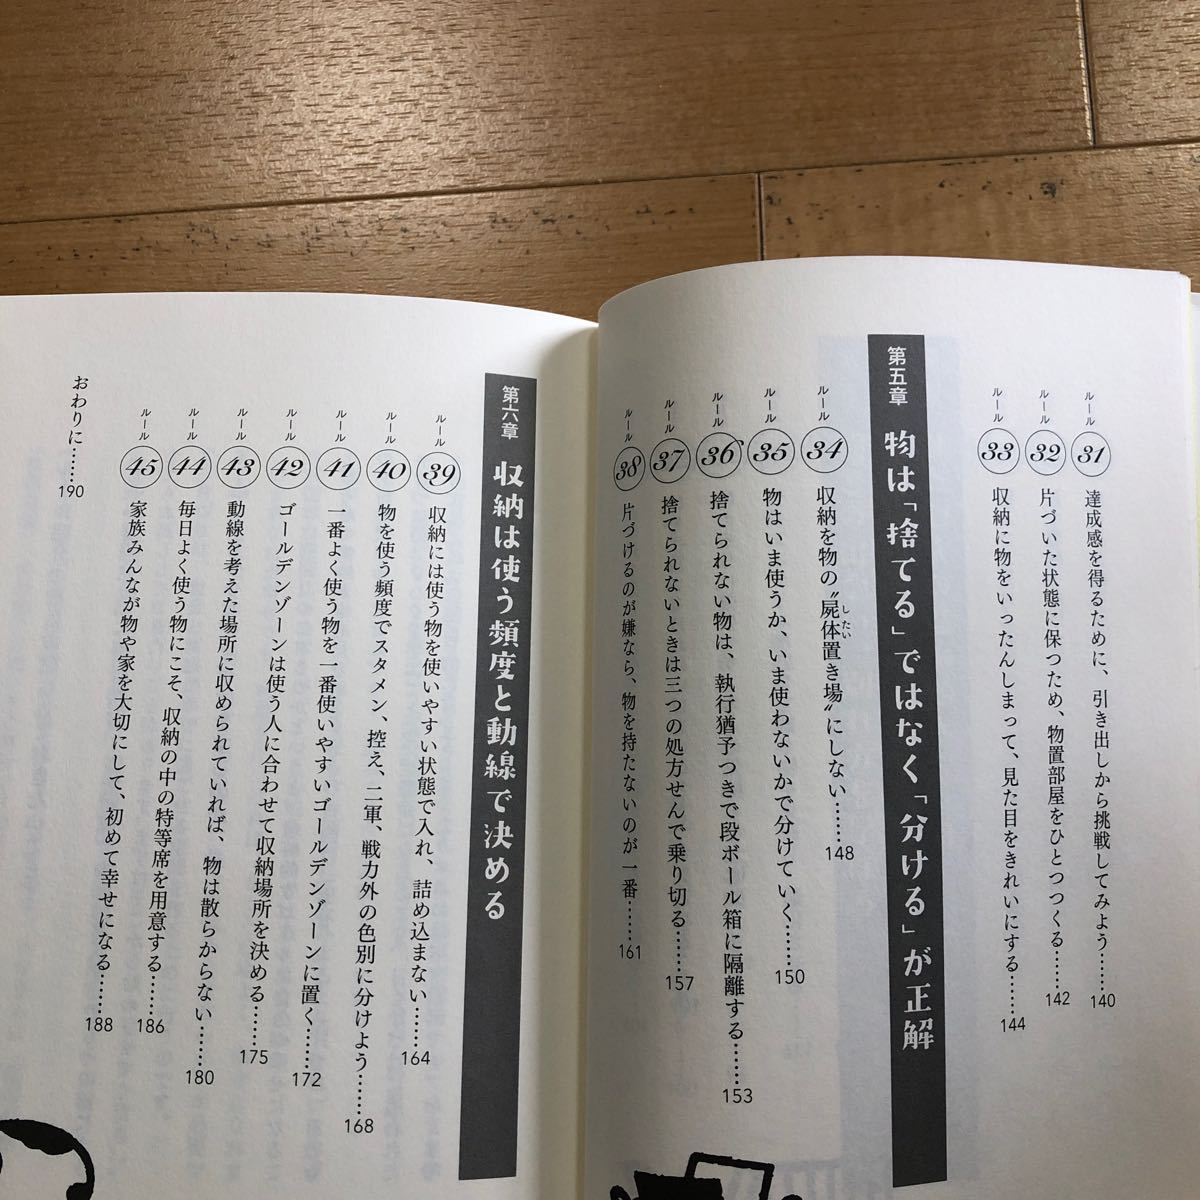 ルール31 達成感を得るために、引き出しから挑戦してみよう……140
ルール32 片づいた状態に保つため、物置部屋をひとつつくる……142
ルール33 収納に物をいったんしまって、見た目をきれいにする……144
第五章 物は「捨てる」ではなく「分ける」が正解
ルール34 収納を物の〝屍体置き場〟にしない……148
したい
ルール35 物はいま使うか、いま使わないかで分けていく……150
ルール36 捨てられない物は、執行猶予つきで段ボール箱に隔離する……153
ルール37 捨てられないときは三つの処方せんで乗り切る……157
ルール38 片づけるのが嫌なら、物を持たないのが一番……161
第六章 収納は使う頻度と動線で決める
ルール39 収納には使う物を使いやすい状態で入れ、詰め込まない……164
ルール40 物を使う頻度でスタメン、控え、二軍、戦力外の色別に分けよう……168
ルール41 一番よく使う物を一番使いやすいゴールデンゾーンに置く……172
ルール42 ゴールデンゾーンは使う人に合わせて収納場所を決める……175
ルール43 動線を考えた場所に収められていれば、物は散らからない……180
ルール44 毎日よく使う物にこそ、収納の中の特等席を用意する……186
ルール45 家族みんなが物や家を大切にして、初めて幸せになる……188
おわりに……190